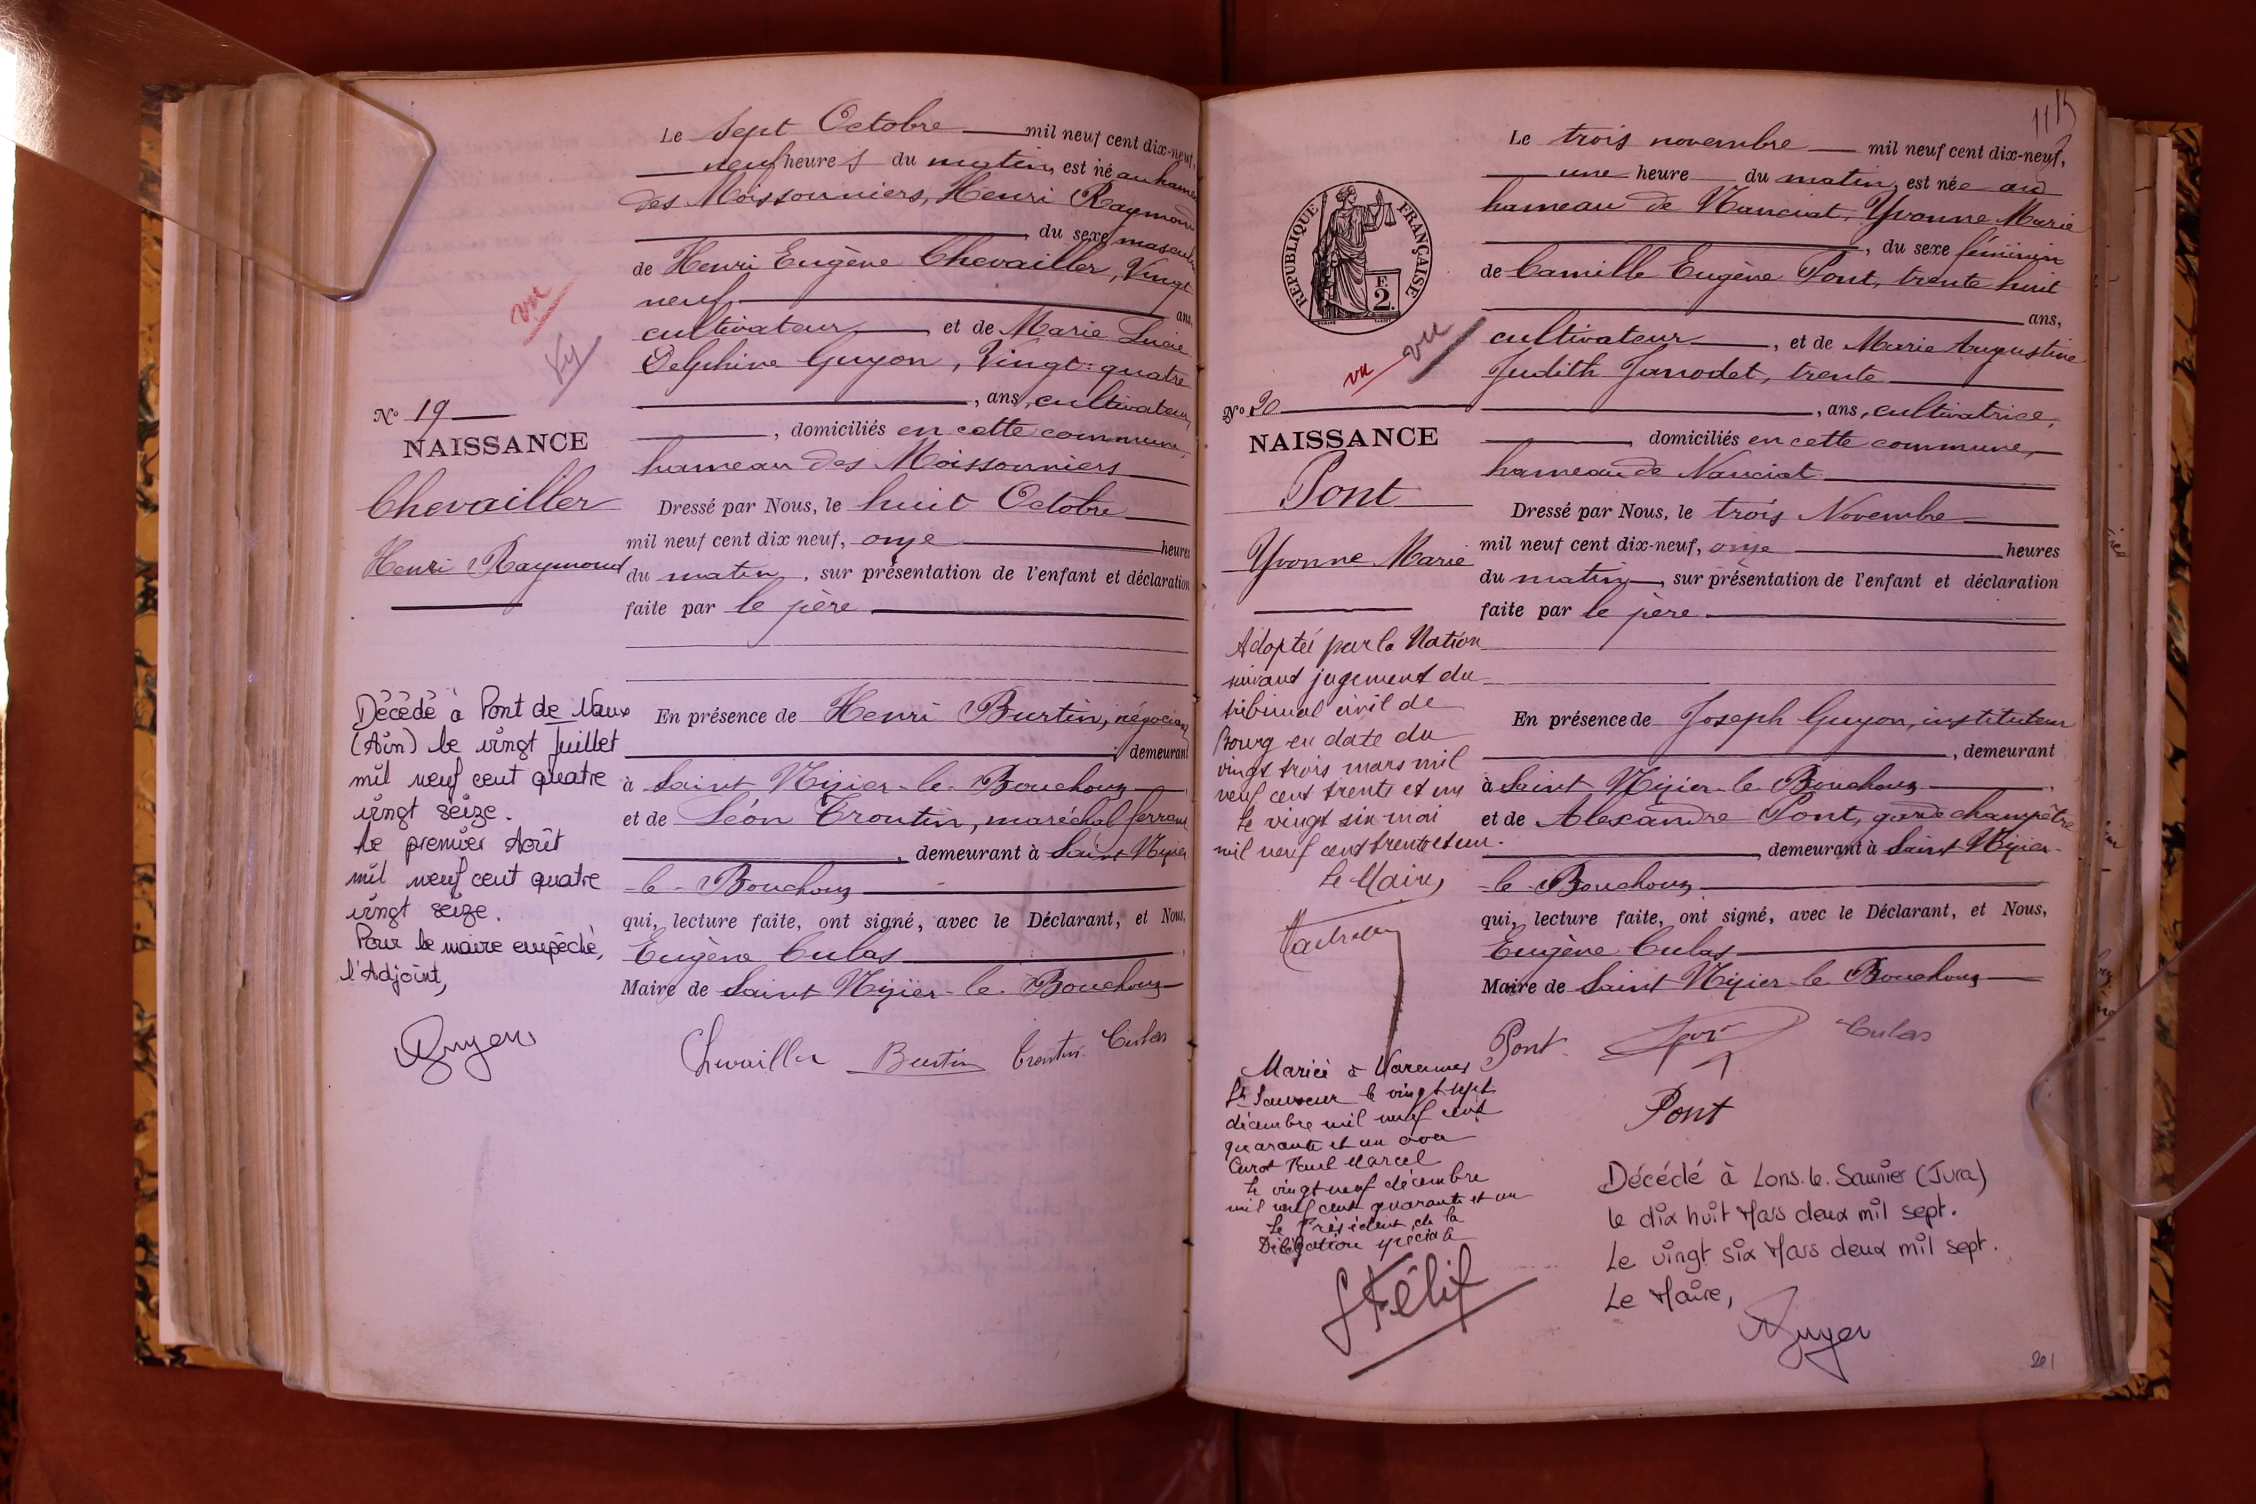 Le sept Octobre mil neuf cent dix-neuf,
neuf heures du matin, est né au hameau
des Moissonniers, Henri Raymond
, du sexe masculin
de Henri Eugène Chevailler, Vingt
neuf ans,
cultivateur, et de Marie Lucie
Delphine Guyon, Vingt-quatre
, ans, cultivateurs
, domiciliés en cette commune,
hameau des Moissonniers
Dressé par Nous, le huit Octobre
mil neuf cent dix neuf, onze heures
du matin, sur présentation de l'enfant et déclaration
faite par le père
En présence de Henri Burtin, négociant
, demeurant
à Saint Nizier-le-Bouchoux,
et de Léon Croutin, maréchal ferrant
, demeurant à Saint Nizier
-le-Bouchoux
qui, lecture faite, ont signé, avec le Déclarant, et Nous,
Eugène Culas,
Maire de Saint Nizier-le-Bouchoux
Chevailler Burtin Croutin Culas
vu
Nº 19
NAISSANCE
Chevailler
Henri Raymond
Décédé à Pont de Vaux
(Ain) le vingt Juillet
mil neuf cent quatre
vingt seize.
Le premier Août
mil neuf cent quatre
vingt seize.
Pour le maire empêché,
l'Adjoint,
115
Le trois novembre mil neuf cent dix-neuf,
une heure du matin, est née au
hameau de Nanciat, Yvonne Marie
, du sexe féminin
de Camille Eugène Pont, trente huit
ans,
cultivateur, et de Marie Augustine
Judith Janodet, trente
, ans, cultivatrice,
, domiciliés en cette commune,
hameau de Nanciat
Dressé par Nous, le trois Novembre
mil neuf cent dix-neuf, onze heures
du matin, sur présentation de l'enfant et déclaration
faite par le père
En présence de Joseph Guyon, instituteur
, demeurant
à Saint Nizier-le-Bouchoux,
et de Alexandre Pont, garde champêtre
, demeurant à Saint Nizier-
-le-Bouchoux
qui, lecture faite, ont signé, avec le Déclarant, et Nous,
Eugène Culas
Maire de Saint Nizier-le-Bouchoux
Pont Culas
Pont
RÉPUBLIQUE FRANÇAISE
E
2
vu vu
Nº 20
NAISSANCE
Pont
Yvonne Marie
Adoptée par la Nation
suivant jugement du
tribunal civil de
Bourg en date du
vingt trois mars mil
neuf cent trente et un
Le vingt six mai
mil neuf cent trente et un.
Le Maire,
Mariée à Varennes
St Sauveur le vingt sept
décembre mil neuf cent
quarante et un avec
Curot Paul Marcel
Le vingt neuf décembre
mil neuf cent quarante et un
Le Président de la
Délégation spéciale
Félix
Décédé à Lons-le-Saunier (Jura)
le dix huit Mars deux mil sept.
Le vingt six Mars deux mil sept.
Le Maire,
201